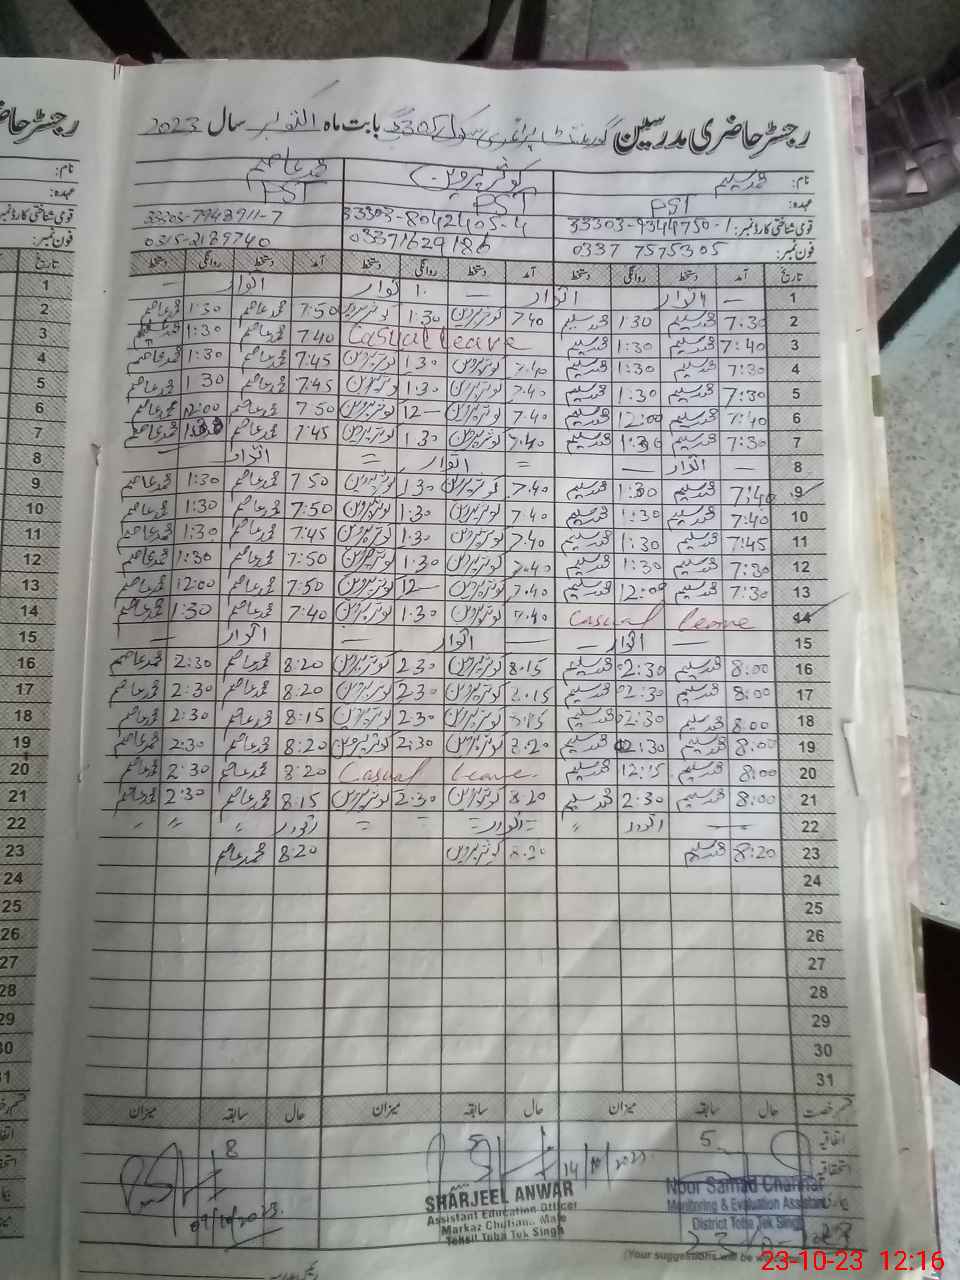 رجسٹر حاضری مدرسین گورنمنٹ پرائمری سکول 305 گ ب بابت ماہ اکتوبر سال 2023
نام: محمد سلیم کوثر پروین محمد عاصم
عہدہ: PST PST PST
قومی شناختی کارڈ نمبر: 33303-9344750-1 33303-8042405-4 33303-7948911-7
فون نمبر: 0337 7575305 03371629186 0315-2139740
تاریخ آمد دستخط روانگی دستخط آمد دستخط روانگی دستخط آمد دستخط روانگی دستخط
1 — اتوار اتوار — اتوار اتوار —
2 7:30 محمد سلیم 1:30 محمد سلیم 7.40 کوثر پروین 1:30 کوثر پروین 7:50 محمد عاصم 1:30 محمد عاصم
3 7:40 محمد سلیم 1:30 محمد سلیم Casual leave 7:40 محمد عاصم 1:30 محمد عاصم
4 7:30 محمد سلیم 1:30 محمد سلیم 7.40 کوثر پروین 1:30 کوثر پروین 7:45 محمد عاصم 1:30 محمد عاصم
5 7:30 محمد سلیم 1:30 محمد سلیم 7.40 کوثر پروین 1:30 کوثر پروین 7:45 محمد عاصم 1 30 محمد عاصم
6 7:40 محمد سلیم 12:00 محمد سلیم 7.40 کوثر پروین 12— کوثر پروین 7 50 محمد عاصم 12:00 محمد عاصم
7 7:30 محمد سلیم 1:30 محمد سلیم 7.40 کوثر پروین 1.30 کوثر پروین 7:45 محمد عاصم 1:30 محمد عاصم
8 — اتوار — = اتوار = اتوار —
9 7:40 محمد سلیم 1:30 محمد سلیم 7.40 کوثر پروین 1:30 کوثر پروین 7 50 محمد عاصم 1:30 محمد عاصم
10 7:40 محمد سلیم 1:30 محمد سلیم 7.40 کوثر پروین 1:30 کوثر پروین 7:50 محمد عاصم 1:30 محمد عاصم
11 7:45 محمد سلیم 1:30 محمد سلیم 7.40 کوثر پروین 1:30 کوثر پروین 7:45 محمد عاصم 1:30 محمد عاصم
12 7:30 محمد سلیم 1:30 محمد سلیم 7.40 کوثر پروین 1:30 کوثر پروین 7:50 محمد عاصم 1:30 محمد عاصم
13 7:30 محمد سلیم 12:00 محمد سلیم 7.40 کوثر پروین 12— کوثر پروین 7:50 محمد عاصم 12:00 محمد عاصم
14 Casual leave 7.40 کوثر پروین 1:30 کوثر پروین 7:40 محمد عاصم 1:30 محمد عاصم
15 — اتوار — — اتوار — اتوار —
16 8:00 محمد سلیم 2:30 محمد سلیم 8.15 کوثر پروین 2 30 کوثر پروین 8:20 محمد عاصم 2:30 محمد عاصم
17 8:00 محمد سلیم 2:30 محمد سلیم 8.15 کوثر پروین 2 30 کوثر پروین 8:20 محمد عاصم 2:30 محمد عاصم
18 8:00 محمد سلیم 2:30 محمد سلیم 8.15 کوثر پروین 2.30 کوثر پروین 8:15 محمد عاصم 2:30 محمد عاصم
19 8:00 محمد سلیم 2:30 محمد سلیم 8.20 کوثر پروین 2:30 کوثر پروین 8:20 محمد عاصم 2:30 محمد عاصم
20 8:00 محمد سلیم 12:15 محمد سلیم Casual leave 8:20 محمد عاصم 2:30 محمد عاصم
21 8:00 محمد سلیم 2:30 محمد سلیم 8.20 کوثر پروین 2:30 کوثر پروین 8:15 محمد عاصم 2:30 محمد عاصم
22 — اتوار = = اتوار = = اتوار = =
23 8:20 محمد سلیم 8.20 کوثر پروین 8:20 محمد عاصم
24
25
26
27
28
29
30
31
قسم رخصت حال سابقہ میزان حال سابقہ میزان حال سابقہ میزان
اتفاقیہ 5 5 8
استحقاقی
14/10/2023
SHARJEEL ANWAR
Assistant Education Officer
Markaz Chuhana, Male
Tehsil Toba Tek Singh
Noor Samad Channar
Monitoring & Evaluation Assistant
District Toba Tek Singh
09/10/2023
(Your suggestions will be welcome)
23-10-23 12:16